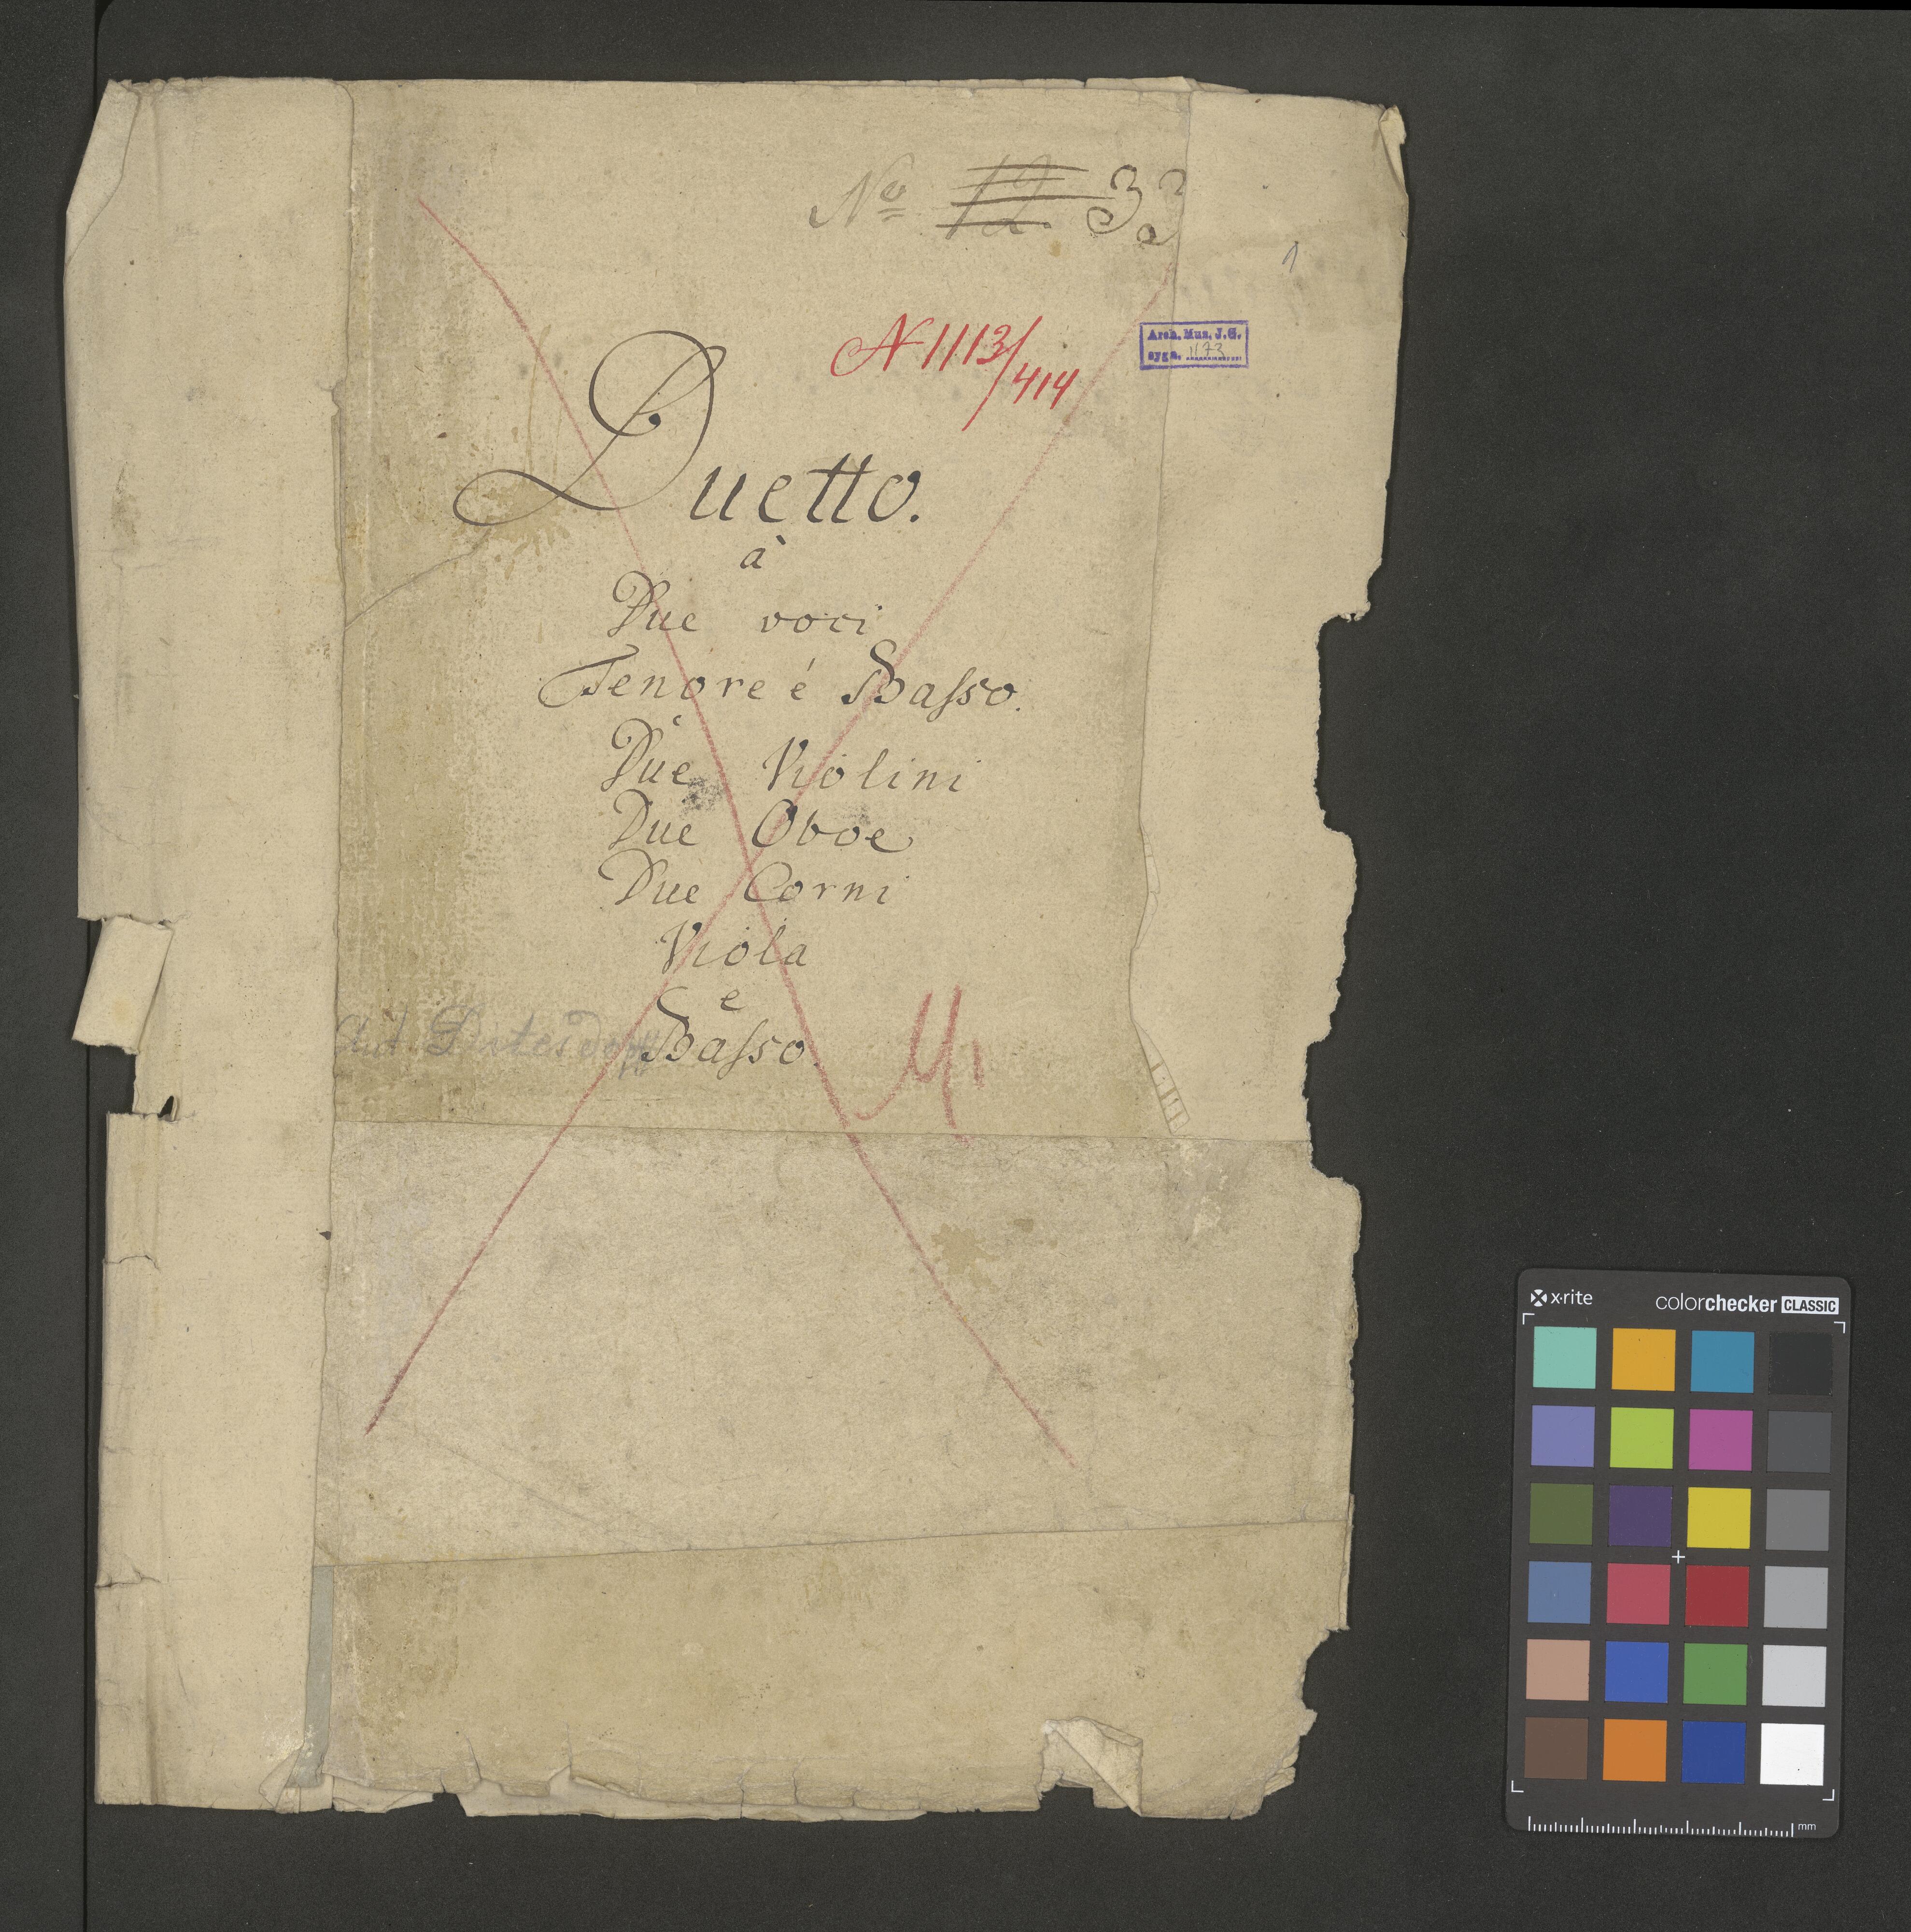 No 12 33
1
N 1113/414
Arch. Mus. J.G.
sygn. 1173
Duetto.
à
Due voci
Tenore é Basso.
Due Violini
Due Oboe
Due Corni
Viola
e
Aut. Ditersdorff
Basso.
x·rite
colorchecker CLASSIC
mm